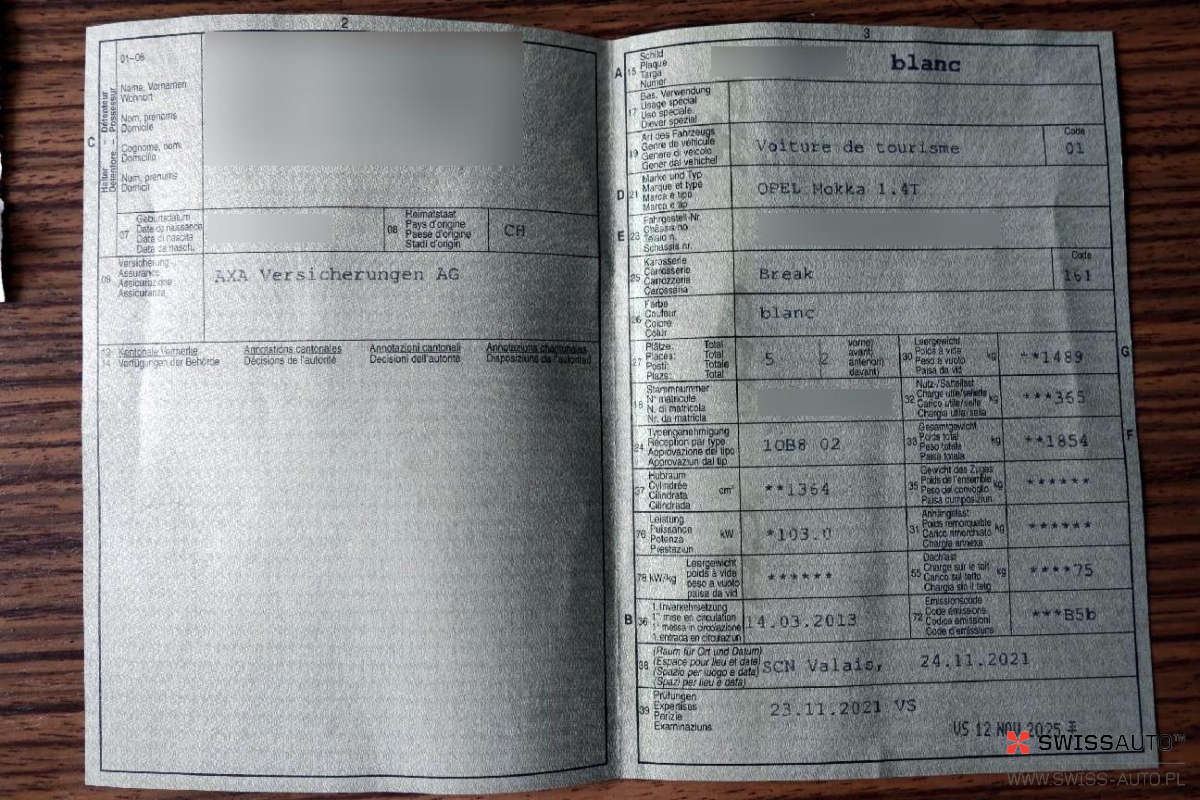 2
01-06
Name, Vornamen
Wohnort
Nom, prénoms
Domicile
Cognome, nomi
Domicilio
Num, prenums
Domicil
Halter – Détenteur
Detentore – Possessur
C
07
Geburtsdatum
Date de naissance
Data di nascita
Data da nasch.
08
Heimatstaat
Pays d'origine
Paese d'origine
Stadi d'origin
CH
09
Versicherung
Assurance
Assicurazione
Assicuranza
AXA Versicherungen AG
13
14
Kantonale Vermerke
Verfügungen der Behörde
Annotations cantonales
Décisions de l'autorité
Annotazioni cantonali
Decisioni dell'autorità
Annotaziuns chantunalas
Disposiziuns da l'autoritad
3
A
15
Schild
Plaque
Targa
Numer
blanc
17
Bes. Verwendung
Usage spécial
Uso speciale
Diever spezial
19
Art des Fahrzeugs
Genre de véhicule
Genere di veicolo
Gener dal vehichel
Voiture de tourisme
Code
01
D
21
Marke und Typ
Marque et type
Marca e tipo
Marca e tip
OPEL Mokka 1.4T
E
23
Fahrgestell-Nr.
Châssis no
Telaio n.
Schassis nr.
25
Karosserie
Carrosserie
Carrozzeria
Carossaria
Break
Code
161
26
Farbe
Couleur
Colore
Colur
blanc
27
Plätze: Total
Places: Total
Posti: Totale
Plazs: Total
5
2
vorne)
avant)
anteriori)
davant)
30
Leergewicht
Poids à vide
Peso a vuoto
Paisa da vid
kg
**1489
G
18
Stammnummer
N° matricule
N. di matricola
Nr. da matricla
32
Nutz-/Sattellast
Charge utile/sellette
Carico utile/sella
Chargia utile/sella
kg
***365
24
Typengenehmigung
Réception par type
Approvazione del tipo
Approvaziun dal tip
1OB8 02
33
Gesamtgewicht
Poids total
Peso totale
Paisa totala
kg
**1854
F
37
Hubraum
Cylindrée
Cilindrata
Cilindrada
cm³
**1364
35
Gewicht des Zuges
Poids de l'ensemble
Peso del convoglio
Paisa cumposiziun
kg
******
76
Leistung
Puissance
Potenza
Prestaziun
kW
*103.0
31
Anhängelast
Poids remorquable
Carico rimorchiato
Chargia annexa
kg
******
78
kW/kg
Leergewicht
poids à vide
peso a vuoto
paisa da vid
******
55
Dachlast
Charge sur le toit
Carico sul tetto
Chargia sin il tetg
kg
****75
B
36
1. Inverkehrsetzung
1re mise en circulation
1a messa in circolazione
1. entrada en circulaziun
14.03.2013
72
Emissionscode
Code émissions
Codice emissioni
Code d'emissiuns
***B5b
38
(Raum für Ort und Datum)
(Espace pour lieu et date)
(Spazio per luogo e data)
(Spazi per lieu e data)
SCN Valais, 24.11.2021
39
Prüfungen
Expertises
Perizie
Examinaziuns
23.11.2021 VS
VS 12 NOV 2025
SWISSAUTO™
WWW.SWISS-AUTO.PL